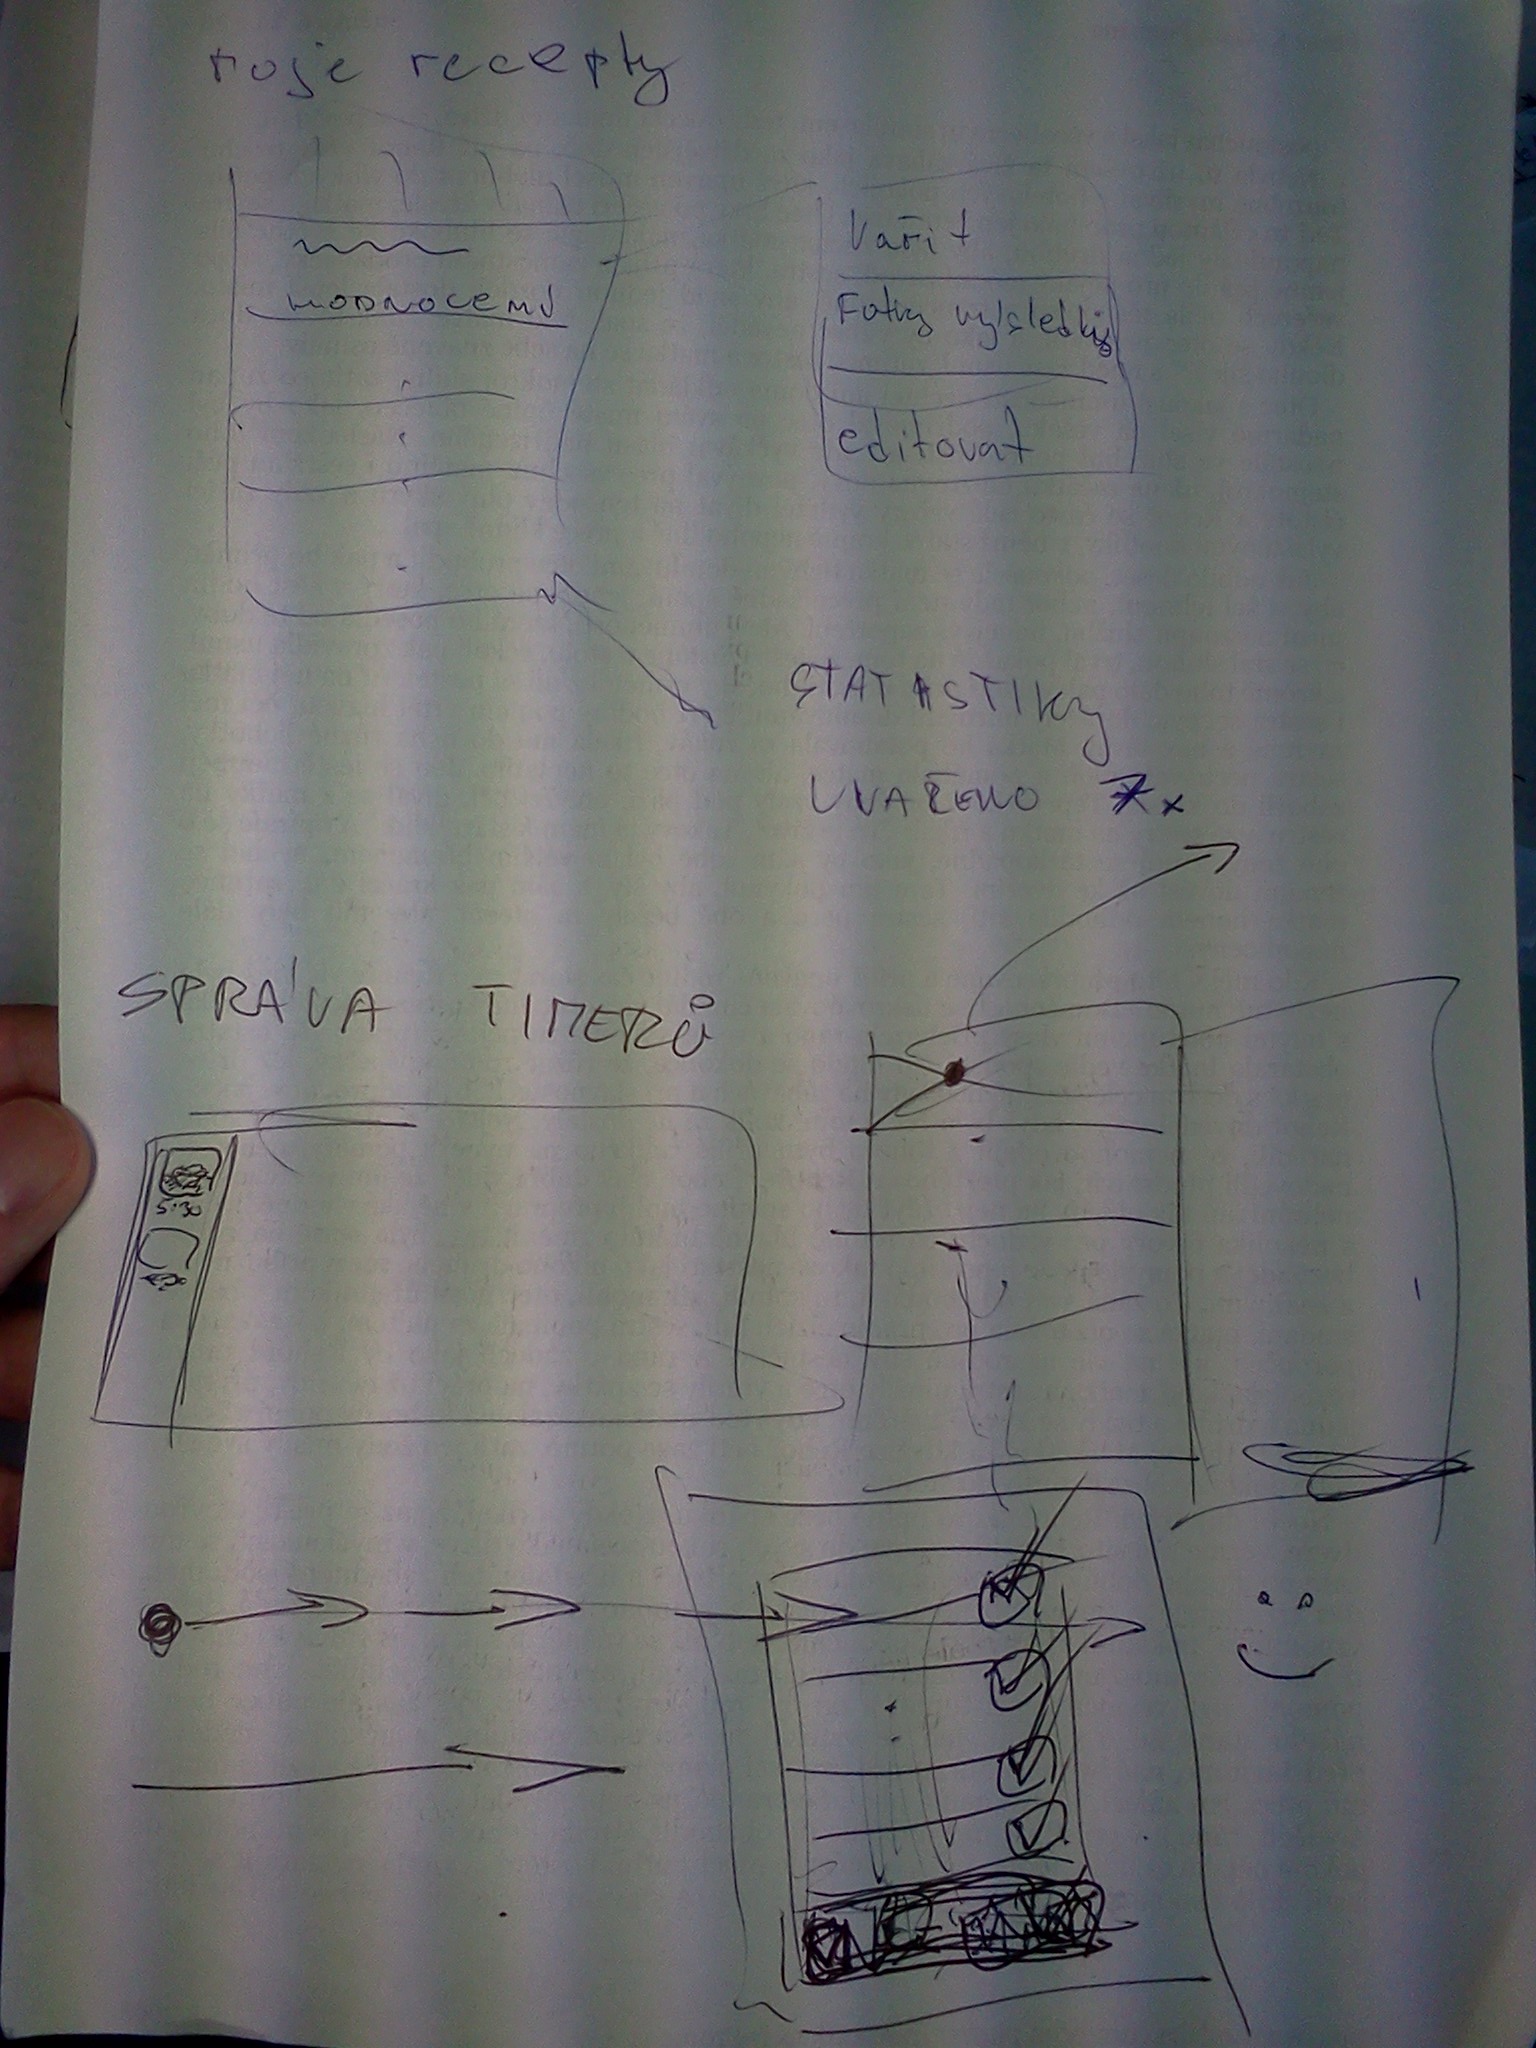 moje recepty
Vařit
HODNOCENÍ
Fotky výsledků
editovat
STATISTIKY
UVAŘENO 7x
SPRÁVA TIMERŮ
5:30